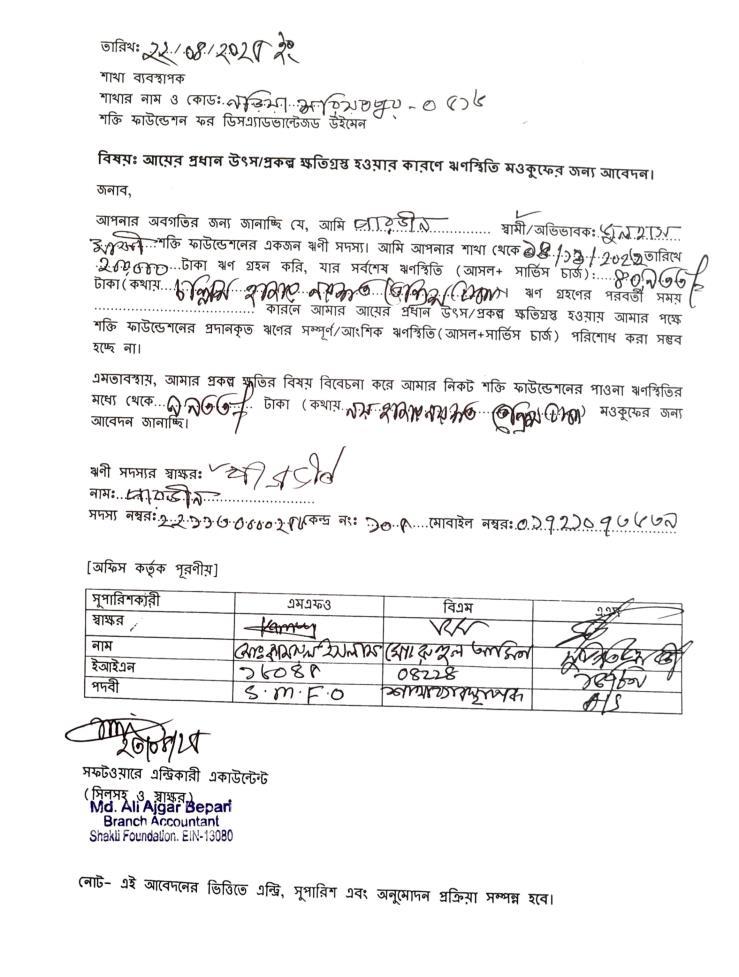 তারিখঃ ২২/০৪/২০২৫ ইং
শাখা ব্যবস্থাপক
শাখার নাম ও কোডঃ নড়িয়া শরিয়তপুর - ০৫১৬
শক্তি ফাউন্ডেশন ফর ডিসএ্যাডভান্টেজড উইমেন
বিষয়ঃ আয়ের প্রধান উৎস/প্রকল্প ক্ষতিগ্রস্ত হওয়ার কারণে ঋণস্থিতি মওকুফের জন্য আবেদন।
জনাব,
আপনার অবগতির জন্য জানাচ্ছি যে, আমি পারভীন স্বামী/অভিভাবক:
শক্তি ফাউন্ডেশনের একজন ঋণী সদস্য। আমি আপনার শাখা থেকে তারিখে
টাকা ঋণ গ্রহন করি, যার সর্বশেষ ঋণস্থিতি (আসল+ সার্ভিস চার্জ): ৪০,৯৩৩/
টাকা (কথায় চল্লিশ হাজার নয়শত তেত্রিশ টাকা) ঋণ গ্রহণের পরবর্তী সময়
কারনে আমার আয়ের প্রধান উৎস/প্রকল্প ক্ষতিগ্রস্ত হওয়ায় আমার পক্ষে
শক্তি ফাউন্ডেশনের প্রদানকৃত ঋণের সম্পূর্ণ/আংশিক ঋণস্থিতি(আসল+সার্ভিস চার্জ) পরিশোধ করা সম্ভব
হচ্ছে না।
এমতাবস্থায়, আমার প্রকল্প ক্ষতির বিষয় বিবেচনা করে আমার নিকট শক্তি ফাউন্ডেশনের পাওনা ঋণস্থিতির
মধ্যে থেকে ৯,৯৩৩/ টাকা (কথায় নয় হাজার নয়শত তেত্রিশ টাকা) মওকুফের জন্য
আবেদন জানাচ্ছি।
ঋণী সদস্যের স্বাক্ষর: পারভীন
নাম: পারভীন
সদস্য নম্বর: কেন্দ্র নং: মোবাইল নম্বর:
[অফিস কর্তৃক পূরণীয়]
সুপারিশকারী এমএফও বিএম
স্বাক্ষর
নাম মোঃ কামরুল ইসলাম মোঃ রুহুল আমিন
ইআইএন 08228
পদবী S.M.F.O শাখা ব্যবস্থাপক A/S
সফটওয়ারে এন্ট্রিকারী একাউন্টেন্ট
(সিলসহ ও স্বাক্ষর)
Md. Ali Ajgar Bepari
Branch Accountant
Shakti Foundation. EIN-13080
নোট- এই আবেদনের ভিত্তিতে এন্ট্রি, সুপারিশ এবং অনুমোদন প্রক্রিয়া সম্পন্ন হবে।